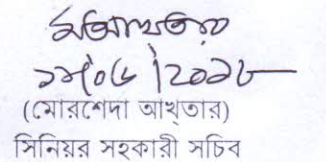 ১৯/০৬/২০১৮
(মোরশেদা আখ্তার)
সিনিয়র সহকারী সচিব